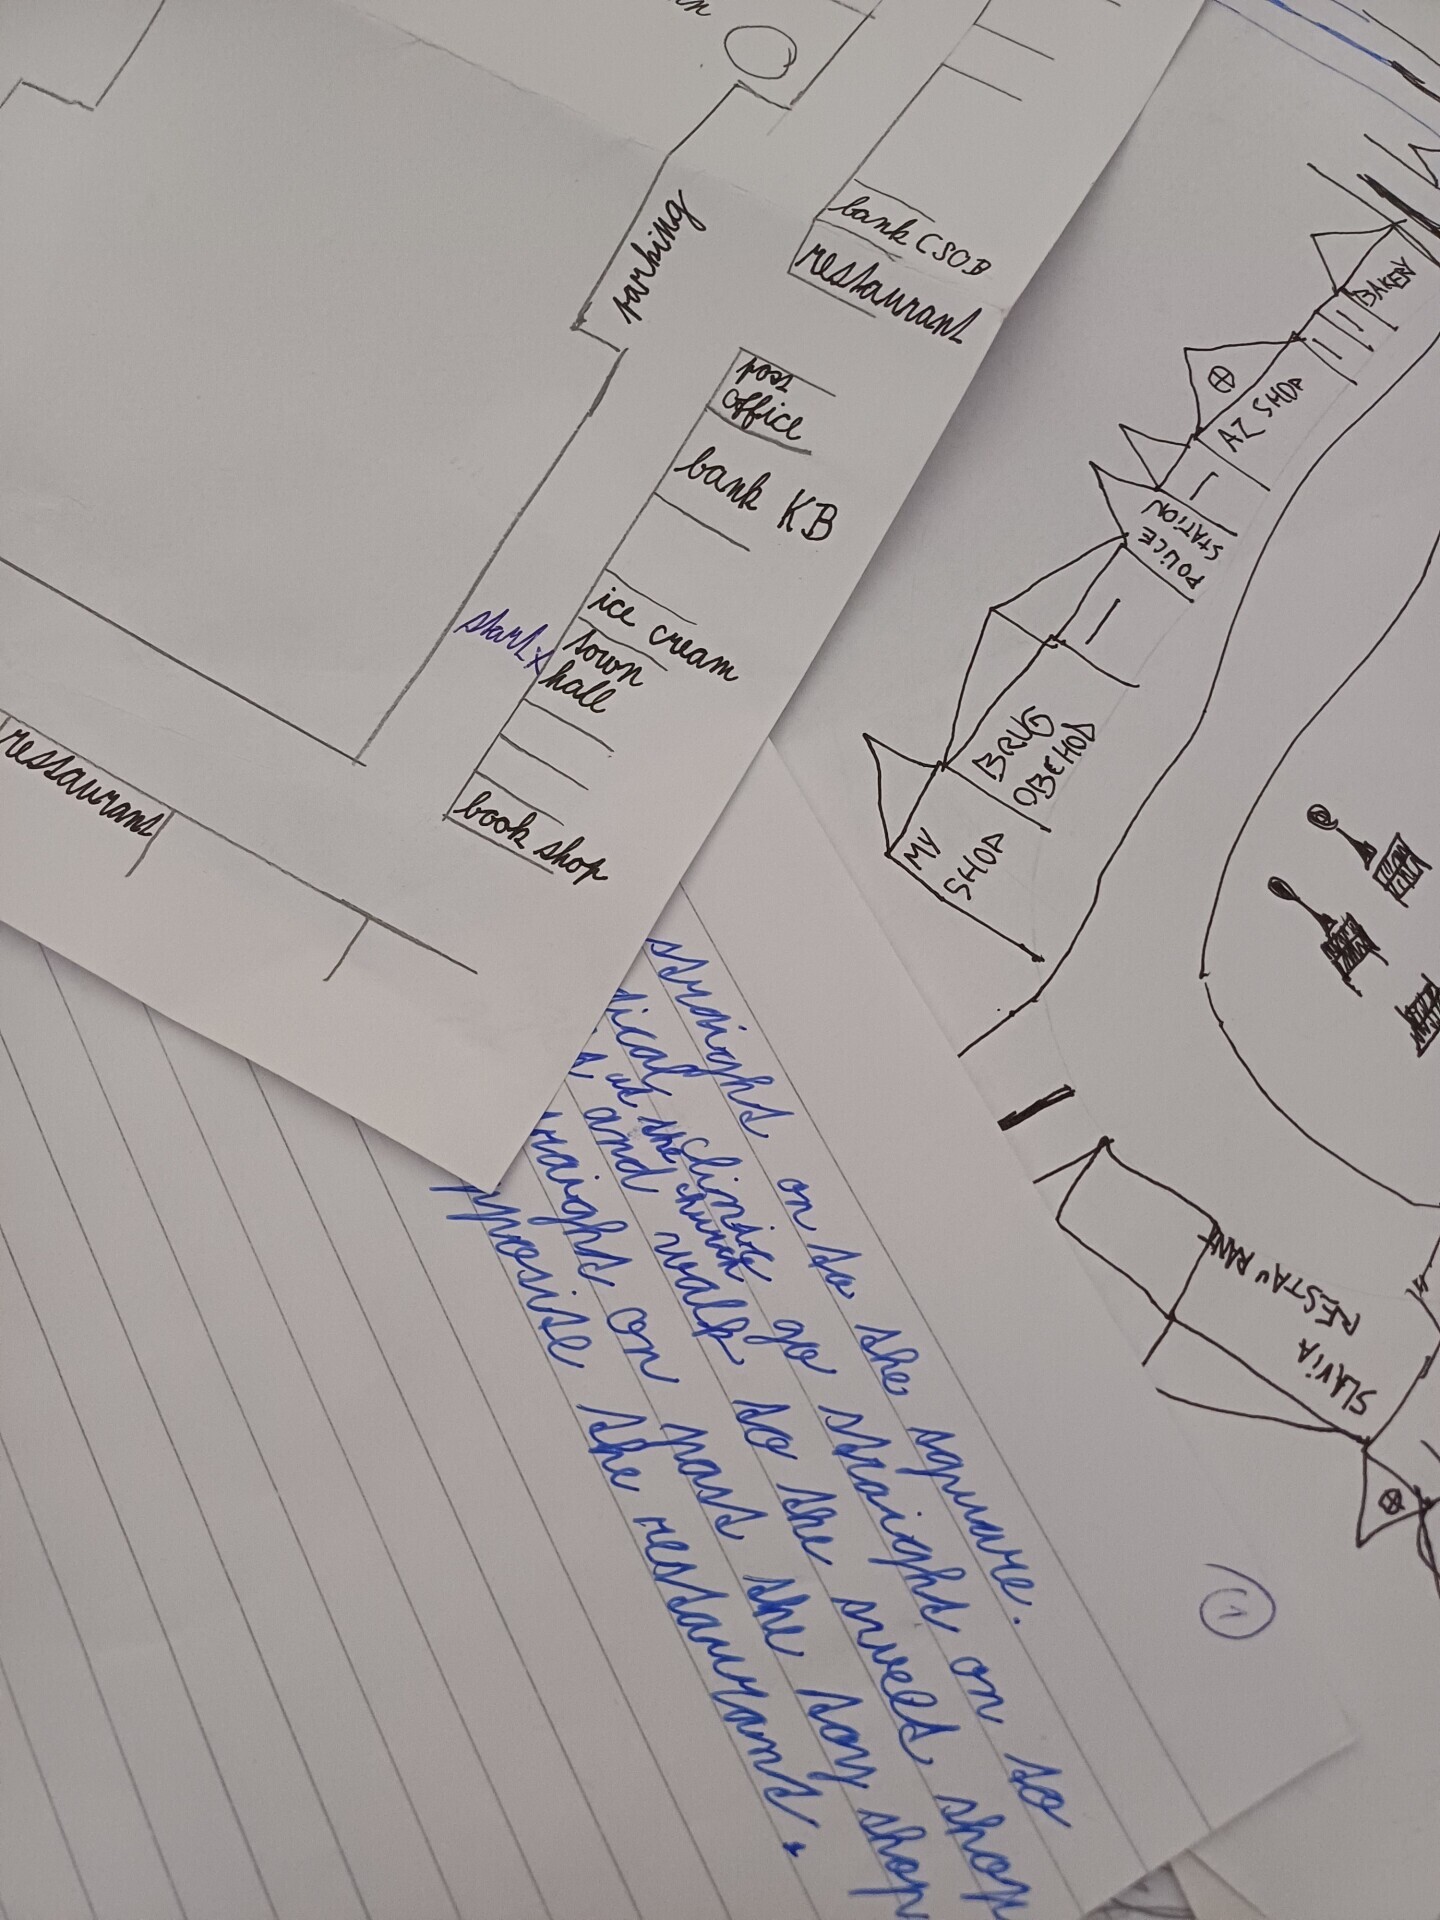 parking
bank CSOB
restaurant
post
office
bank KB
ice cream
start x
town
hall
book shop
restaurant
BAKERY
AZ SHOP
POLICE
STATION
DRUG
OBCHOD
MY
SHOP
SLAVIA
RESTAURANT
straight on to the square.
dical clinic go straight on to
at the church
and walk to the sweet shop
raight on past the toy shop
pposite the restaurant.